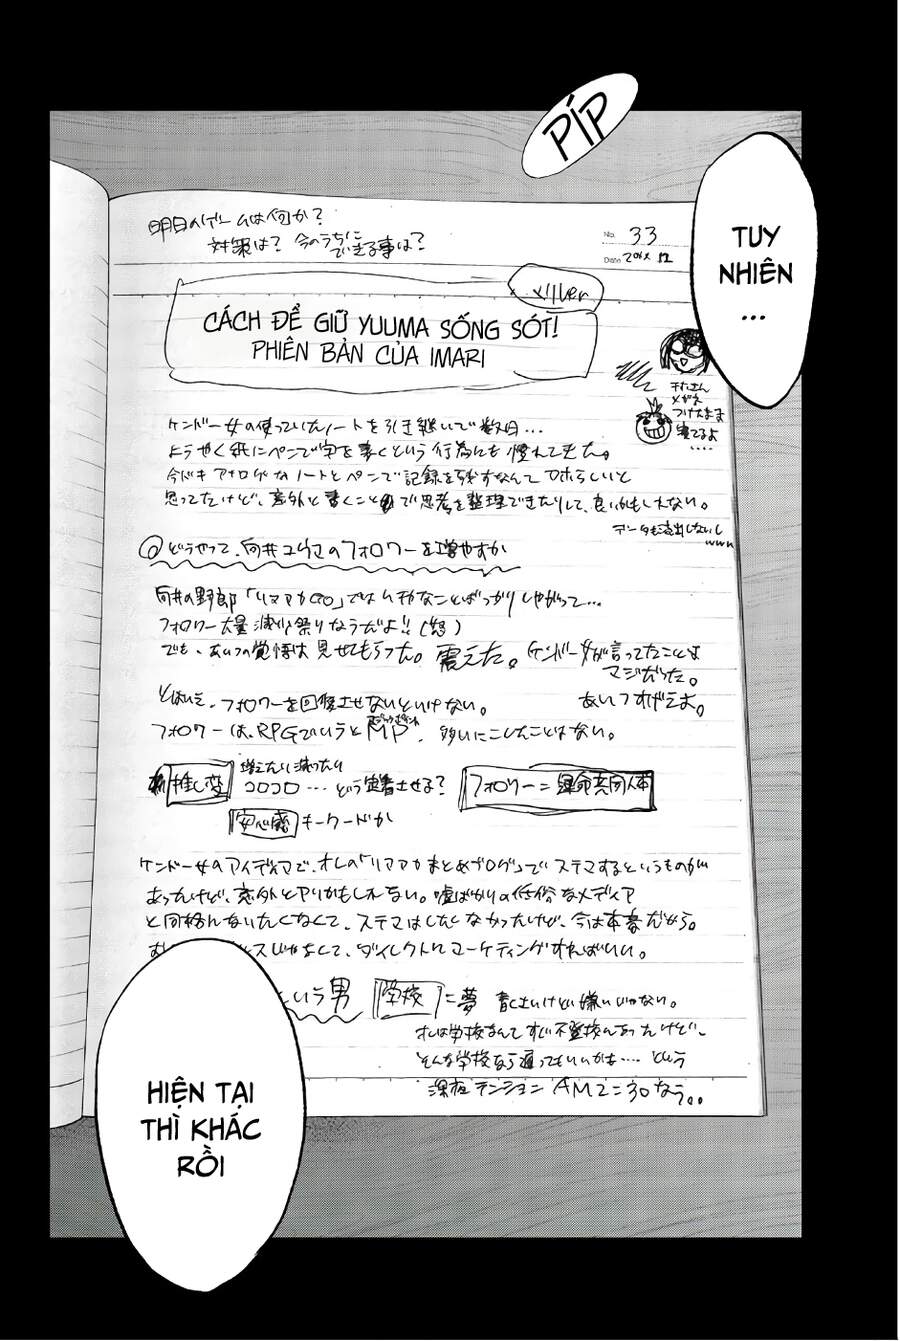 PÍP
TUY
NHIÊN
...
明日のゲームは何か?
対策は? 今のうちに
できる事は?
No. 33
Date
CÁCH ĐỂ GIỮ YUUMA SỐNG SÓT!
PHIÊN BẢN CỦA IMARI
メガネ
つけたまま
寝てるよ
....
ケンドー女の使っていたノートを引き継いで数日...
ようやく紙にペンで字を書くという行為にも慣れてきた。
今どきアナログなノートとペンで記録を残すなんて
思ってたけど、意外と書くことで思考を整理できたりして、良いかもしれない。
データも流出しないし
www
◎どうやって、向井ユウマのフォロワーを増やすか
向井の野郎「リアアカGO」では
フォロワー大量減少祭りなうだよ!!(怒)
でも、あいつの覚悟は見せてもらった。震えた。ケンドー女が言ってたことは
マジだった。
あいつすげえよ。
とはいえ、フォロワーを回復させないといけない。
フォロワーは、RPGでいうとMP、多いにこしたことはない。
推し変 増えたり減ったり
コロコロ... どう定着させる? フォロワー=運命共同体
安心感 キーワードか
ケンドー女のアイディアで、オレの「リアアカまとめブログ」でステマするというものが
あったけど、意外とアリかもしれない。嘘ばかりの低俗なメディア
と同格になりたくなくて、ステマはしたくなかったけど、今は本音だから。
じゃなくて、ダイレクトにマーケティングすればいい。
という男 学校=夢 青くさいけど嫌いじゃない。
オレは学校なんてすぐ不登校になったけど、
そんな学校なら通ってもいいかな.... という
深夜テンション AM2:30なう。。
HIỆN TẠI
THÌ KHÁC
RỒI